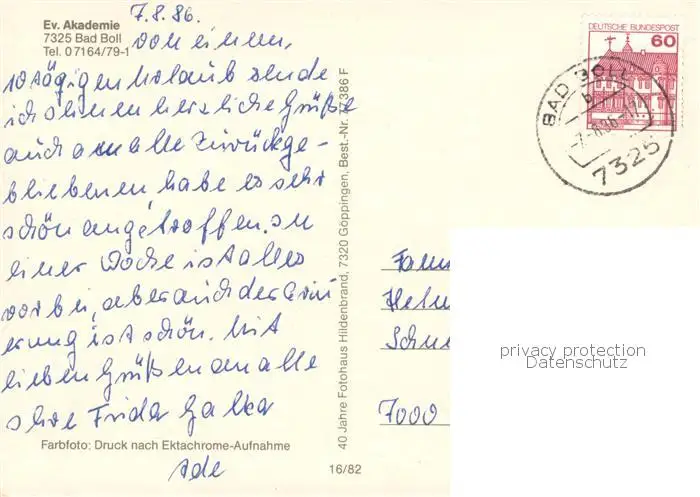 7.8.86.
Ev. Akademie
7325 Bad Boll
Tel. 07164/79-1
von einem,
10 tägigen Urlaub sende
ich Ihnen herzliche Grüße
auch an alle Zurückge-
bliebenen, habe es sehr
schön angetroffen. In
einer Woche ist alles
vorbei, aber auch der Erin
erung ist schön. Mit
lieben Grüßen an alle
Ihre Frida Galka
Ade
Farbfoto: Druck nach Ektachrome-Aufnahme
16/82
40 Jahre Fotohaus Hildenbrand, 7320 Göppingen, Best.-Nr. 386 F
DEUTSCHE BUNDESPOST
60
BAD BOLL
b
-7.-8.86-17
7325
Fam
Helm
Schu
7000
privacy protection
Datenschutz